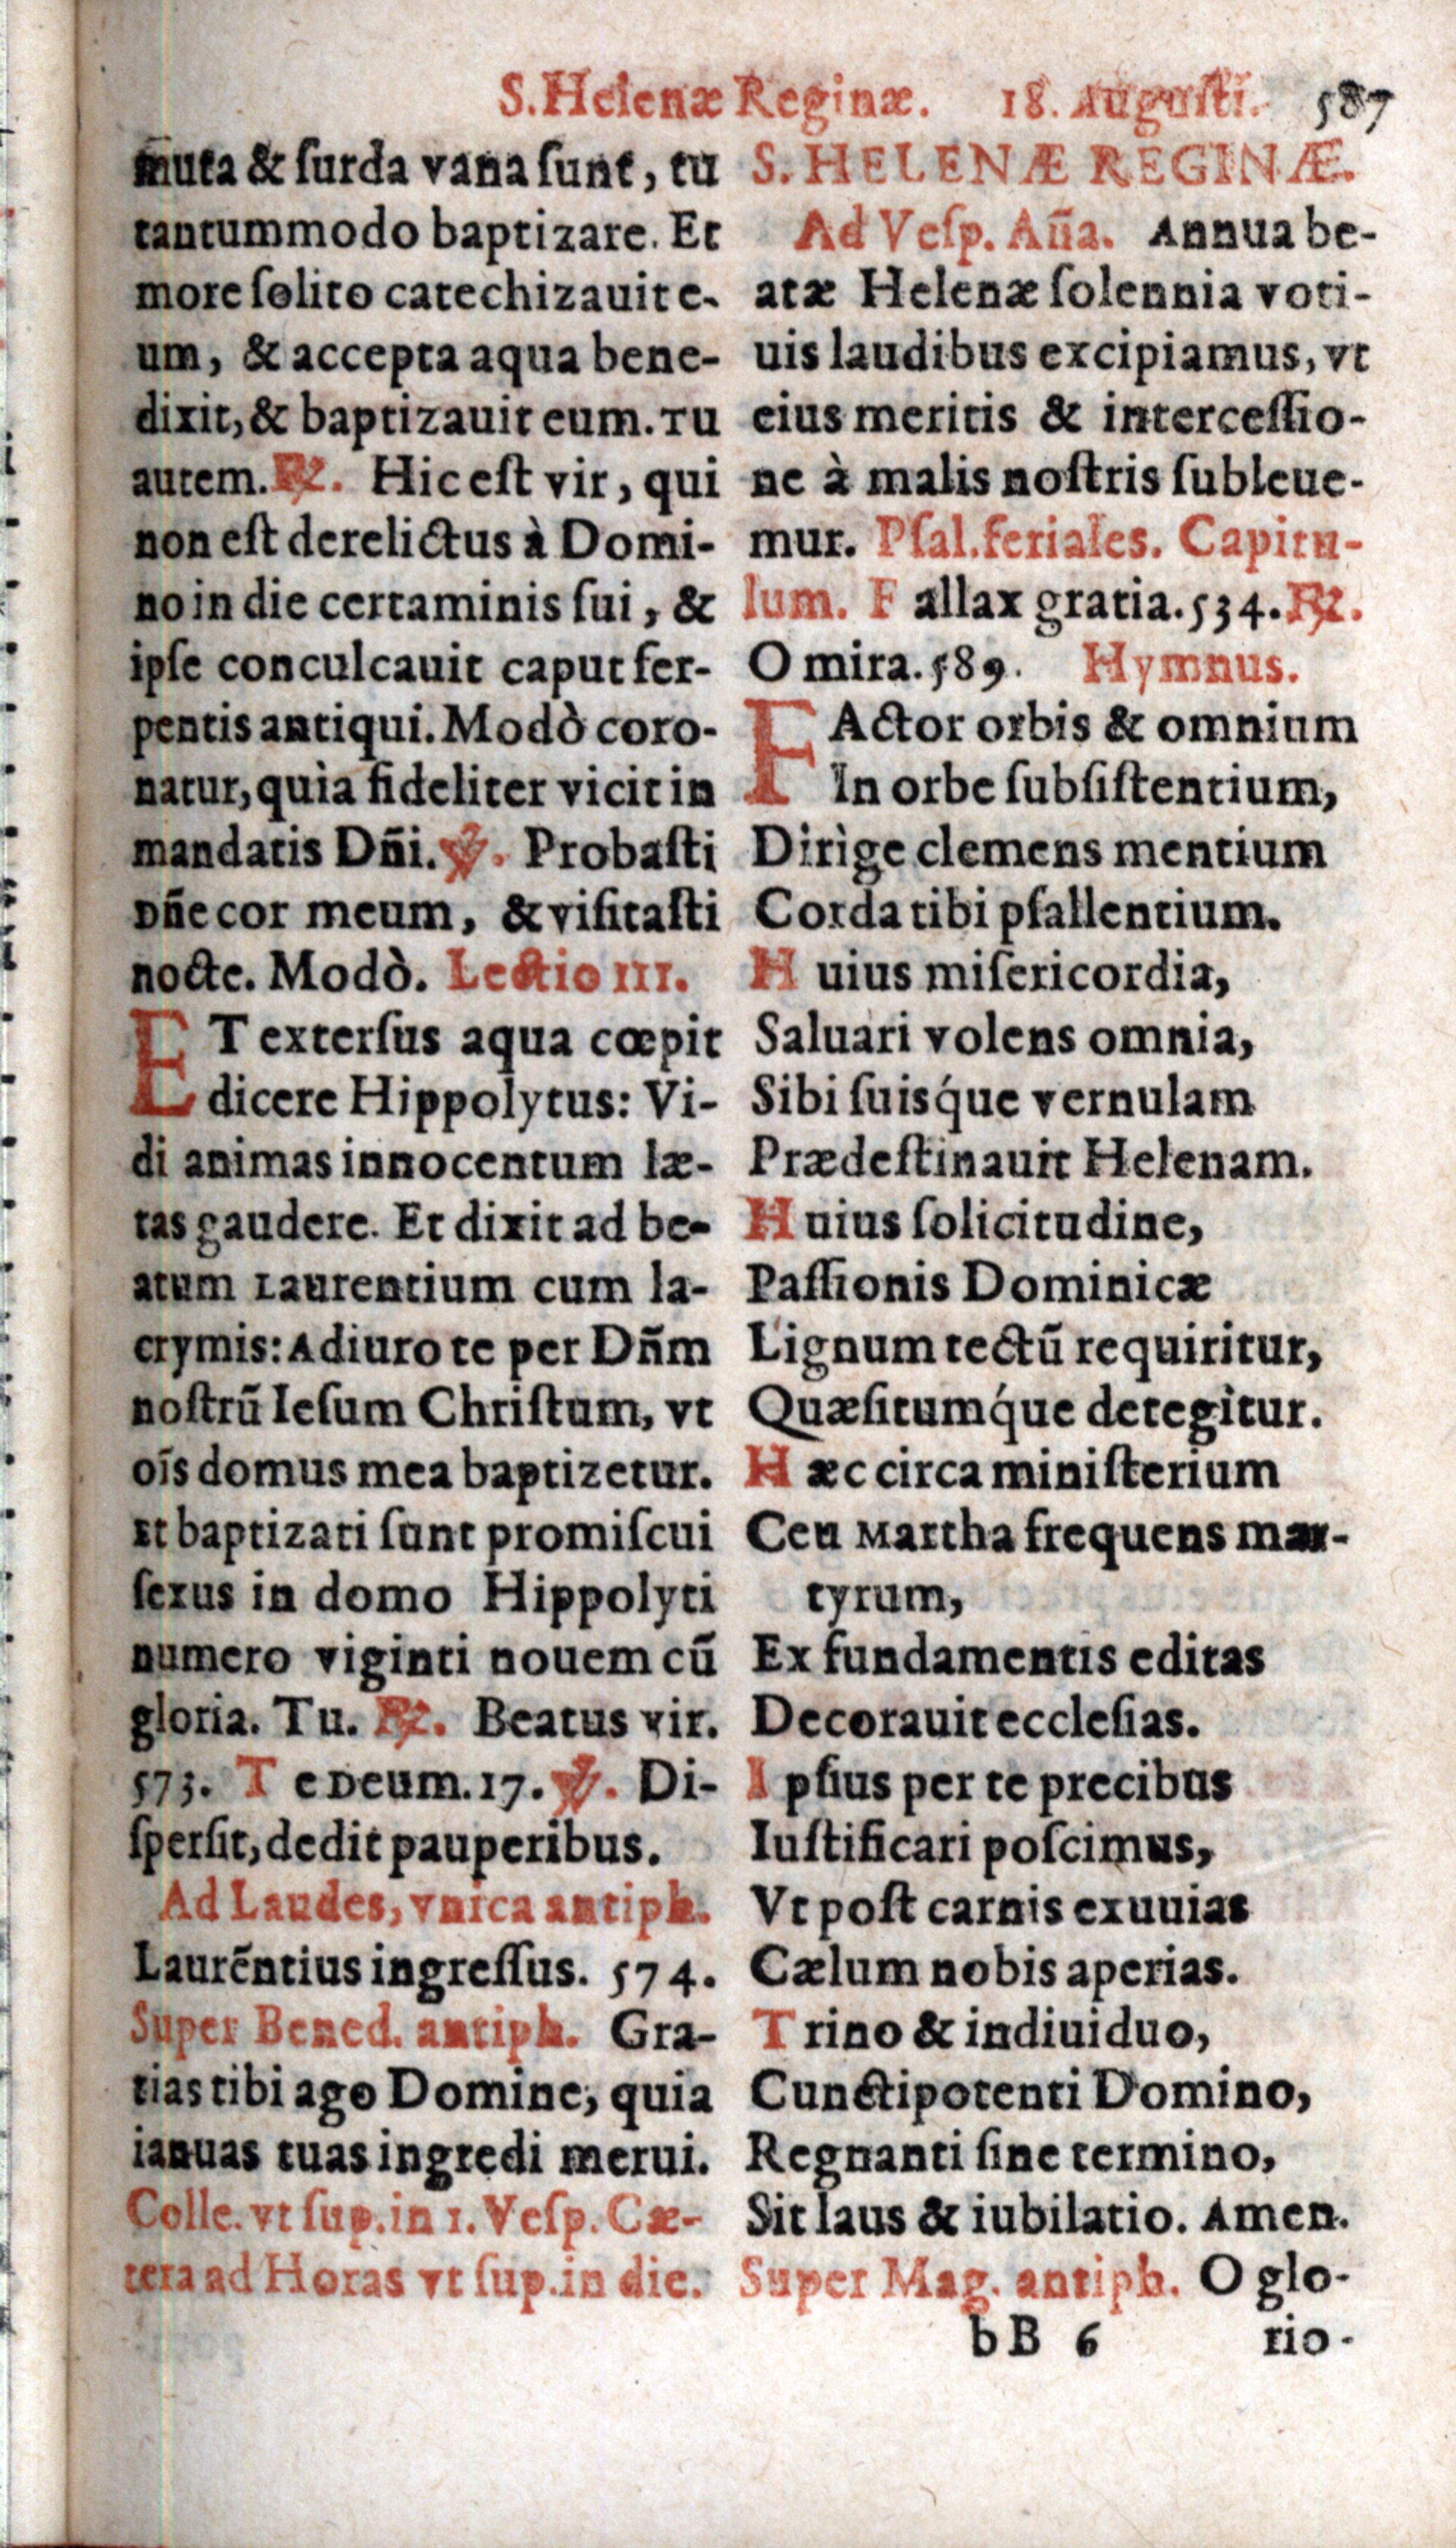 S. Helenæ Reginæ. 18. Augusti. 587
muta & ſurda vana ſunt, tu
tantummodo baptizare. Et
more ſolito catechizauit e-
um, & accepta aqua bene-
dixit, & baptizauit eum. Tu
autem. ℟. Hic eſt vir, qui
non eſt derelictus à Domi-
no in die certaminis ſui, &
ipſe conculcauit caput ſer-
pentis antiqui. Modò coro-
natur, quia fideliter vicit in
mandatis Dñi. ℣. Probaſti
Dñe cor meum, & viſitaſti
nocte. Modò. Lectio III.
ET exterſus aqua cœpit
dicere Hippolytus: Vi-
di animas innocentum læ-
tas gaudere. Et dixit ad be-
atum Laurentium cum la-
crymis: Adiuro te per Dñm
noſtrū Ieſum Chriſtum, vt
oīs domus mea baptizetur.
Et baptizati ſunt promiſcui
ſexus in domo Hippolyti
numero viginti nouem cū
gloria. Tu. ℟. Beatus vir.
573. Te Deum. 17. ℣. Di-
ſperſit, dedit pauperibus.
Ad Laudes, vnica antiph.
Laurēntius ingreſſus. 574.
Super Bened. antiph. Gra-
tias tibi ago Domine, quia
ianuas tuas ingredi merui.
Colle. vt ſup. in 1. Veſp. Cæ-
tera ad Horas vt ſup. in die.
S. HELENÆ REGINÆ.
Ad Veſp. Aña. Annua be-
atæ Helenæ ſolennia voti-
uis laudibus excipiamus, vt
eius meritis & interceſſio-
ne à malis noſtris ſubleue-
mur. Pſal. feriales. Capitu-
lum. Fallax gratia. 534. ℟.
O mira. 589. Hymnus.
FActor orbis & omnium
In orbe ſubſiſtentium,
Dirìge clemens mentium
Corda tibi pſallentium.
Huius miſericordia,
Saluari volens omnia,
Sibi ſuisq́ue vernulam
Prædeſtinauit Helenam.
Huius ſolicitudine,
Paſſionis Dominicæ
Lignum tectū requiritur,
Quæſitumq́ue detegitur.
Hæc circa miniſterium
Ceu Martha frequens mar-
tyrum,
Ex fundamentis editas
Decorauit eccleſias.
Ipſius per te precibus
Iuſtificari poſcimus,
Vt poſt carnis exuuias
Cælum nobis aperias.
Trino & indiuiduo,
Cunctipotenti Domino,
Regnanti ſine termino,
Sit laus & iubilatio. Amen.
Super Mag. antiph. O glo-
bB 6 rio-